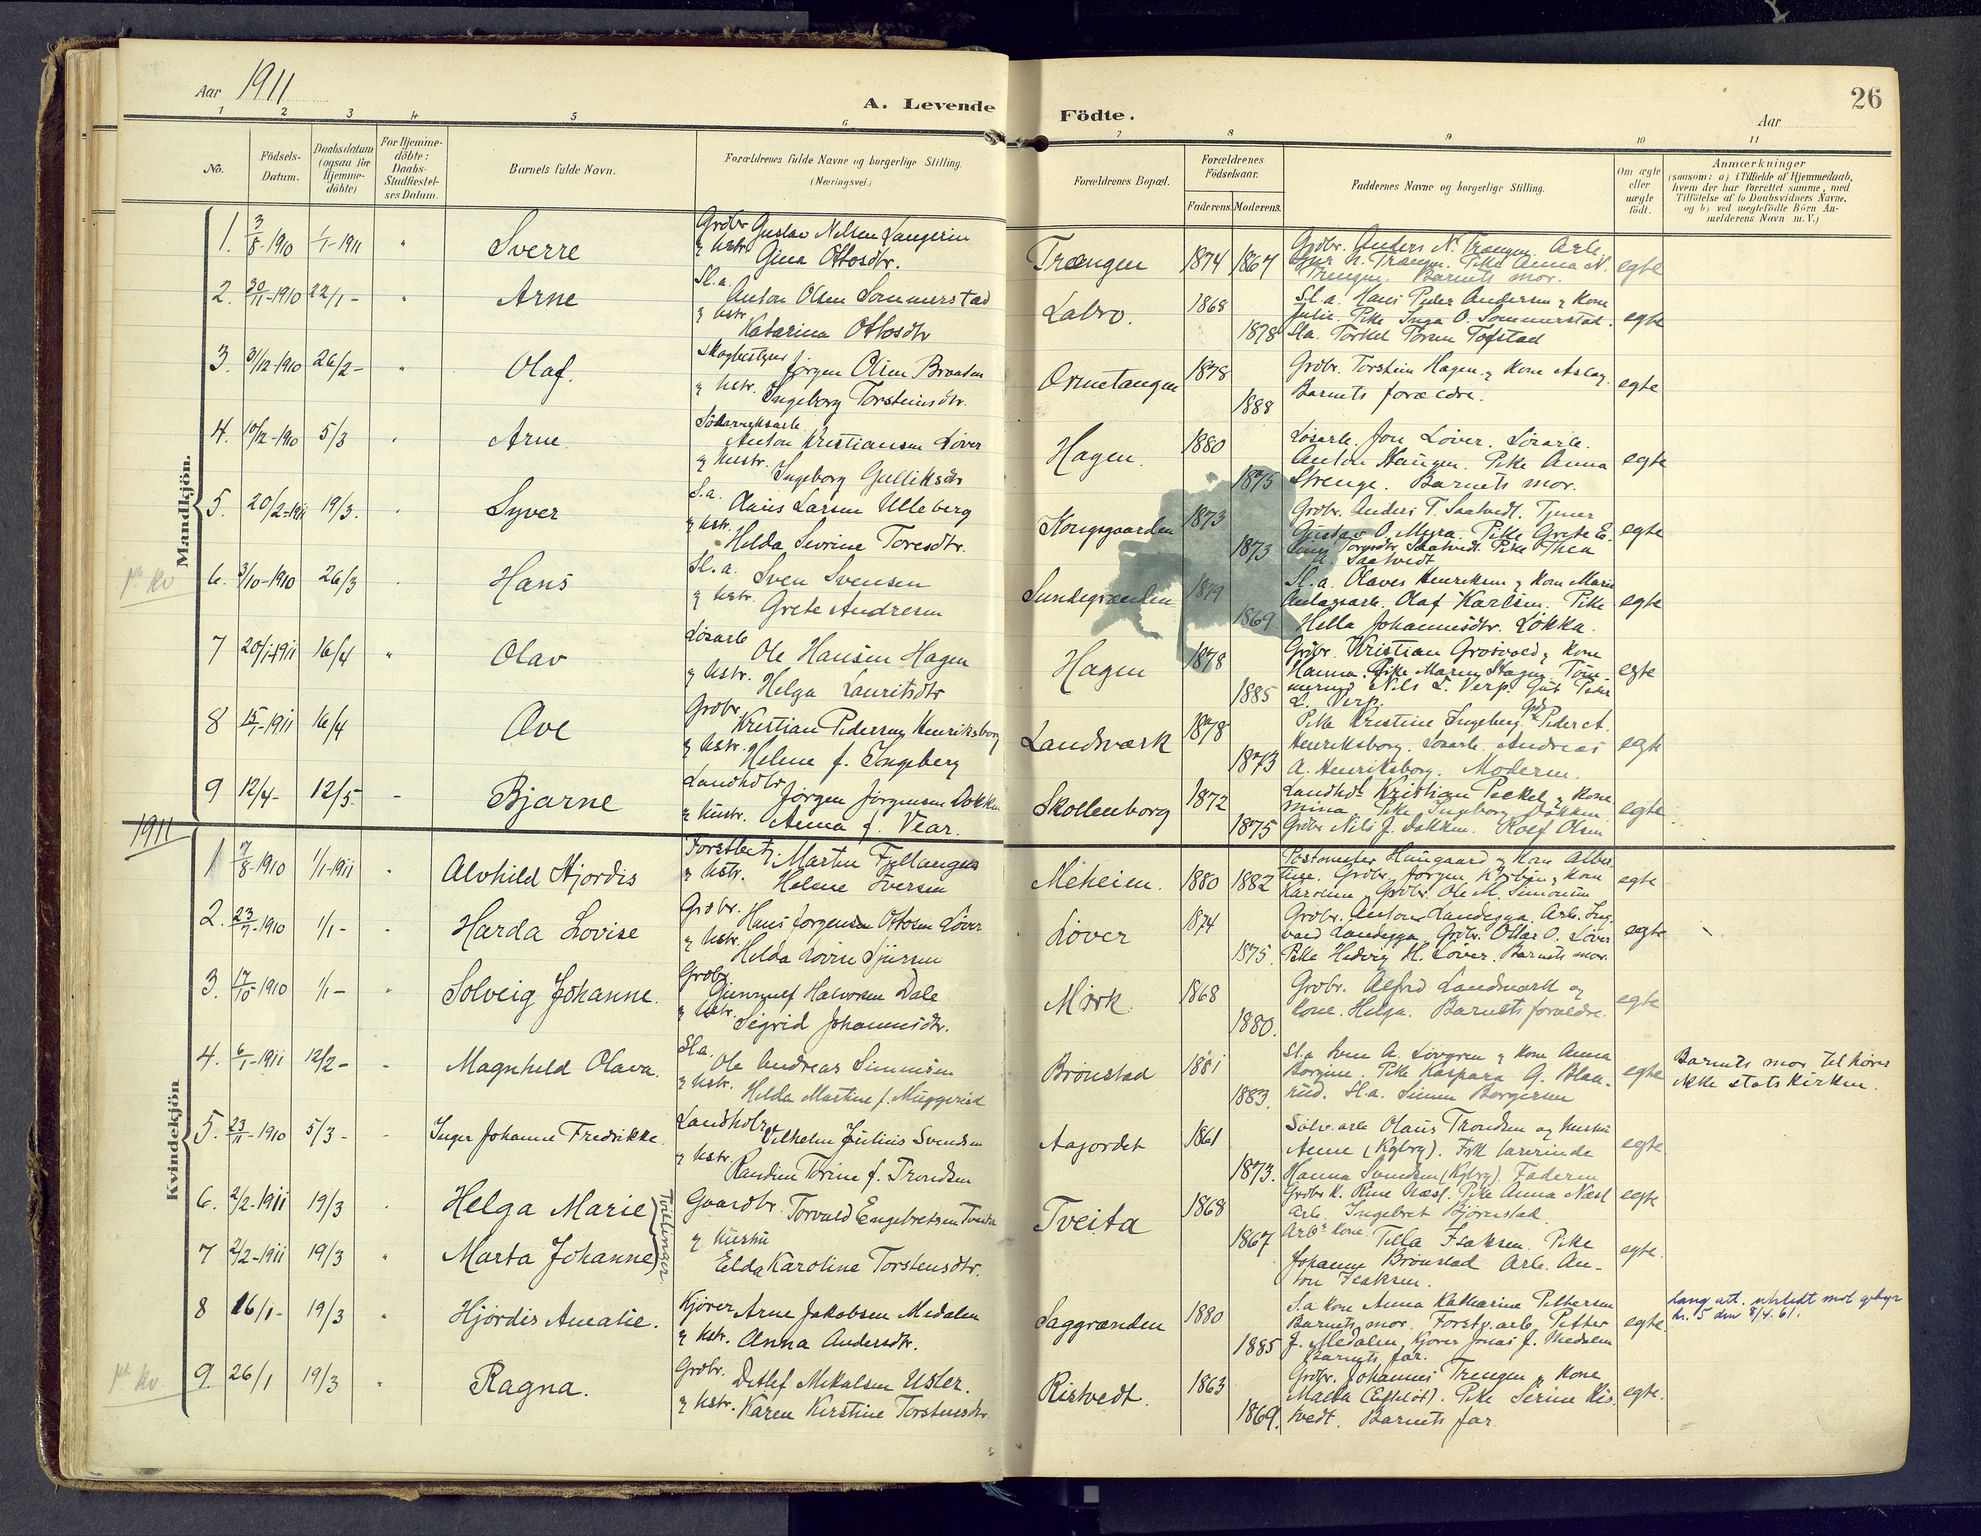 Aar 1911
A. Levende Födte.
26
Aar
1 2 3 4 5 6 7 8 9 10 11
No.
Födsels-Datum.
Daabsdatum (ogsaa for Hjemme-döbte)
For Hjemme-döbte: Daabs-Stadfæstelses Datum.
Barnets fulde Navn.
Forældrenes fulde Navne og borgerlige Stilling. (Næringsvei.)
Forældrenes Bopæl.
Forældrenes Födselsaar.
Faderens. Moderens.
Faddernes Navne og borgerlige Stilling.
Om ægte eller uægte födt.
Anmærkninger
(saasom: a) i Tilfælde af Hjemmedaab, hvem der har forrettet samme, med Tilföielse af to Daabsvidners Navne, og b) ved uægtefödte Börn Anmelderens Navn m. V.)
Mandkjön.
1. 3/8-1910 1/1-1911 " Sverre
Grdbr Gustav Nilsen Langerin
& hstr Gina Ottosdtr.
Trængen 1874 1867
Grdbr. Anders N. Trængen. Arb.
N. Trængen. Pike Anna N.
Trengen. Barnets mor.
egte
2. 30/11-1910 22/1- " Arne
Sl.a. Anton Olsen Sommerstad
& hstr Katarina Ottosdtr
Labro. 1868 1878
Sl.a. Hans Peder Andersen & kone
Julie. Pike Inga O. Sommerstad.
Sla. Torkel Torsen Tofstad
egte
3. 31/12-1910 26/2- " Olaf.
Skogbestyrer Jørgen Olsen Braaten
& hstr. Ingeborg Torsteinsdtr.
Ormetangen 1878 1888
Grdbr. Torstein Hagen & kone Aslaug
Barnets forældre.
egte
4. 10/12-1910 5/3 " Arne.
Anton Kristiansen Løver
& hustr. Ingeborg Gulliksdtr
Hagen. 1880 1875
Løsarb. Jon Løver. Løsarb.
Anton Haugen. Pike Anna
Strenge. Barnets mor.
egte
5. 20/2-1911 19/3. Syver
S.a. Olaus Larsen Ulleberg
& hstr. Hilda Sevrine Toresdtr.
Kongsgaarden 1873 1873
Grdbr. Anders T. Saatvedt. Tjener
Gustav O. Myra. Pike Grete E.
Toresdtr Saatvedt. Pike Thea
A. Saatvedt
egte
6. 3/10-1910 26/3 " Hans
Sl.a. Sven Svensen
& hstr. Grete Andresen
Sundegrænden 1879 1869.
Sl.a. Olaves Henriksen & kone Marie
Anlægsarb. Olaf Karlsen. Pike
Hella Johannesdtr. Løkka.
egte
7 20/1-1911 16/4 " Olav
Løsarb Ole Hansen Hagen
& hstr. Helga Lauritsdtr
Hagen 1878 1885
Grdbr. Kristian Grosvold & kone
Hanna. Pike Maren Hagen. Töm-
mermd Nils L. Verp. Gut Peder
L. Verp.
egte
8 15/1-1911 16/4 Ove
Grdbr. Kristian Pedersen Henriksborg
& hstr. Helene f. Engeberg
Landsværk 1878 1873
Pike Kristine Ingeberg. Grdbr Peder A.
Henriksborg. Løsarb. Andreas
A. Henriksborg. Moderen.
egte
9 12/4- 12/5- - Bjarne
Landhdlr Jörgen Jörgensen Dokken
& hustr. Anna f. Vear.
Skollenborg 1872 1875
Landhdl. Kristian Peckel & kone
mina Pike Ingeborg Dokken.
Grdbr Nils J. Dokken. Rolf Olsen
egte.
1911
Kvindekjön
1 7/8-1910 1/1-1911 " Alvhild Hjordis
Forstbetj. Martin Fyllingen
& hstr. Helene Iversen
Meheien. 1880 1882
Postomester Haugaard & kone Alber-
tine. Grdbr. Jørgen & kone
Karoline. Grdbr. Ole M. Simonsen
egte
2. 23/7-1910 1/1- Harda Lovise
Grdbr. Hans Jørgensen Ottosen Løver
& hstr. Hilda Lovise Sjursen
Løver 1874 1875.
Grdbr. Anton Landegga. Arb. Ing-
vald Landegga. Grdbr. Ottar O. Løver
Pike Hedvig H. Løver. Barnets mor.
egte
3. 17/10-1910 1/1- " Solveig Johanne.
Grdbr Gunnulf Halvorsen Dale
& hstr. Sigrid Johannesdtr.
Mørk 1868 1880.
Grdbr. Alfred Landmark og
kone. Helga. Barnets forældre.
egte
4. 6/1-1911 12/2- " Magnhild Olava.
Sl.a. Ole Andreas Simensen
& hstr. Hilda Martine f. Muggerud
Brönstad 1881 1883.
Sl.a Iver A. Lövgren & kone Anna
Borgine. Pike Kaspara G. Blaa-
rud. Sl.a. Simen Borgersen
egte
Barnets mor tilhører
ikke statskirken.
5. 23/11-1910 5/3- Inger Johanne Fredrikke.
Landhdlr Vilhelm Julius Svendsen
& hstr. Randine Torine f. Trondsen
Aajordet 1861 1873.
Sölv.arb Olaus Trondsen og hustru
Anne (Kgbrg). Frk lærerinde
Hanna Svendsen (Kgbrg). Faderen
egte
6. 2/2-1911 19/3 Helga Marie
7 2/2-1911 19/3 " Marta Johanne
Tvillinger.
Gaardbr. Torvald Engebretsen Tveita
& hustru
Elda Karoline Torstensdtr.
Tveita 1868 1867
Grdbr K. Rune Næsl. Pike Anna Næsl
Arb. Ingebret Bjørnstad.
egte
Arbs kone Tilla Isaksen. Pike
Johanne Brönstad Arb. An-
ton Isaksen.
egte.
8 16/1- 19/3 " Hjördis Amalie.
Kjörer Arne Jakobsen Medalen
& hstr. Anna Andersdtr.
Saggrænden 1880 1885
S.a kone Anna Katharina Pettersen
Barnets mor. Forstv.arb Petter
J. Medalen. Kjører Jonas J. Medalen
Barnets far.
egte
Lang att. utstedt mot gebyr
kr. 5 den 8/4.61.
9. 26/1 19/3 " Ragna.
Grdbr. Detlef Mikalsen Usler.
& hstr. Karen Kirstine Torstensdtr.
Ristvedt. 1863 1869.
Grdbr. Johannes Trengen & kone
Marta (Eftelöt). Pike Serine Ris-
tvedt. Barnets far.
egte.